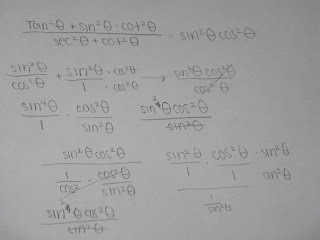 Tan²θ + sin²θ · cot²θ / sec²θ + cot²θ = sin²θcos²θ
sin²θ / cos²θ + sin²θ / 1 · cos²θ / cos²θ → sin²θ cos²θ / cos²θ
sin⁴θ / 1 · cos²θ / sin²θ   sin⁴θcos²θ / sin²θ
sin²θcos²θ / 1 / cos² · cos²θ / sin²θ   sin²θ / 1 · cos²θ / 1 · sin²θ / sin²θ
sin⁴θcos²θ / sin²θ   1 / sin²θ